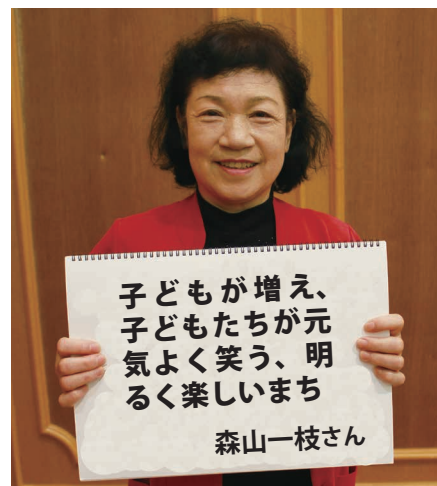 子どもが増え、
子どもたちが元
気よく笑う、明
るく楽しいまち
森山一枝さん